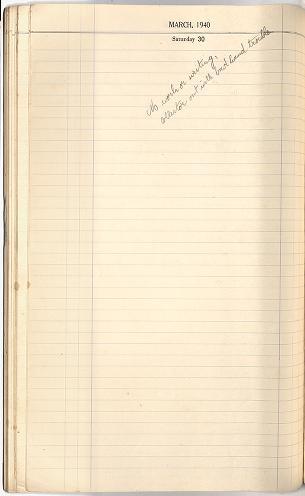 MARCH, 1940
Saturday 30
No work or writing.
Collector out with bad hand trouble